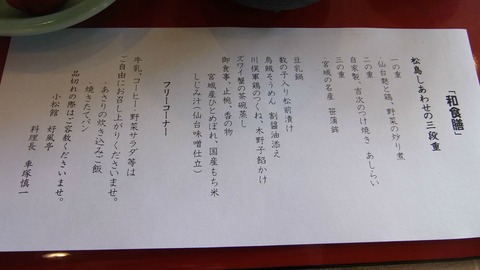 「和食膳」
松島しあわせの三段重
一の重
仙台麩と鶏、野菜の炒り煮
二の重
自家製、吉次のつけ焼き あしらい
三の重
宮城の名産 笹蒲鉾
豆乳鍋
数の子入り松前漬け
烏賊そうめん 割醤油添え
川俣軍鶏のつくね、木野子餡かけ
ズワイ蟹の茶碗蒸し
御食事、止椀、香の物
宮城産ひとめぼれ、国産もち米
しじみ汁(仙台味噌仕立)
フリーコーナー
牛乳、コーヒー・野菜サラダ等は
ご自由にお召し上がりくださいませ。
あさりの炊き込みご飯
焼きたてパン
品切れの際はご容赦くださいませ。
小松館 好風亭
料理長 車塚慎一